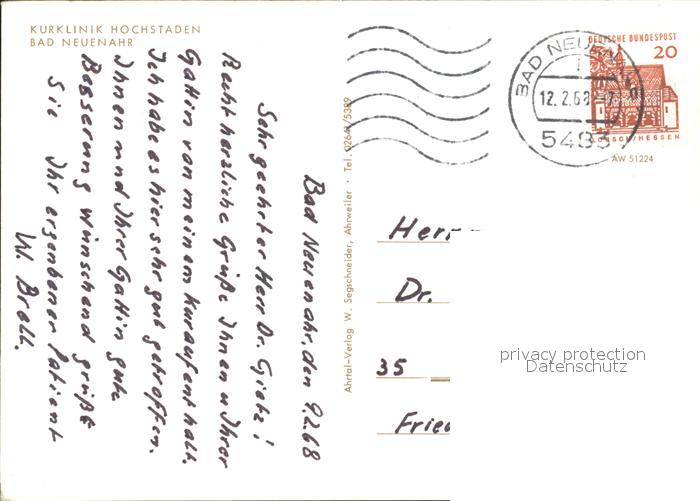 KURKLINIK HOCHSTADEN
BAD NEUENAHR
Bad Neuenahr, den 9.2.68
Sehr geehrter Herr Dr. Gietz!
Recht herzliche Grüße Ihnen u Ihrer
Gattin von meinem Kuraufenthalt.
Ich habe es hier sehr gut getroffen.
Ihnen und Ihrer Gattin gute
Besserung wünschend grüßt
Sie Ihr ergenbener Patient
W. Brell.
Ahrtal-Verlag W. Segschneider, Ahrweiler · Tel. 02641/5389
BAD NEUEN
12.2.68
5483
DEUTSCHE BUNDESPOST
20
LORSCH/HESSEN
AW 51224
Herr
Dr.
35
Fried
privacy protection
Datenschutz